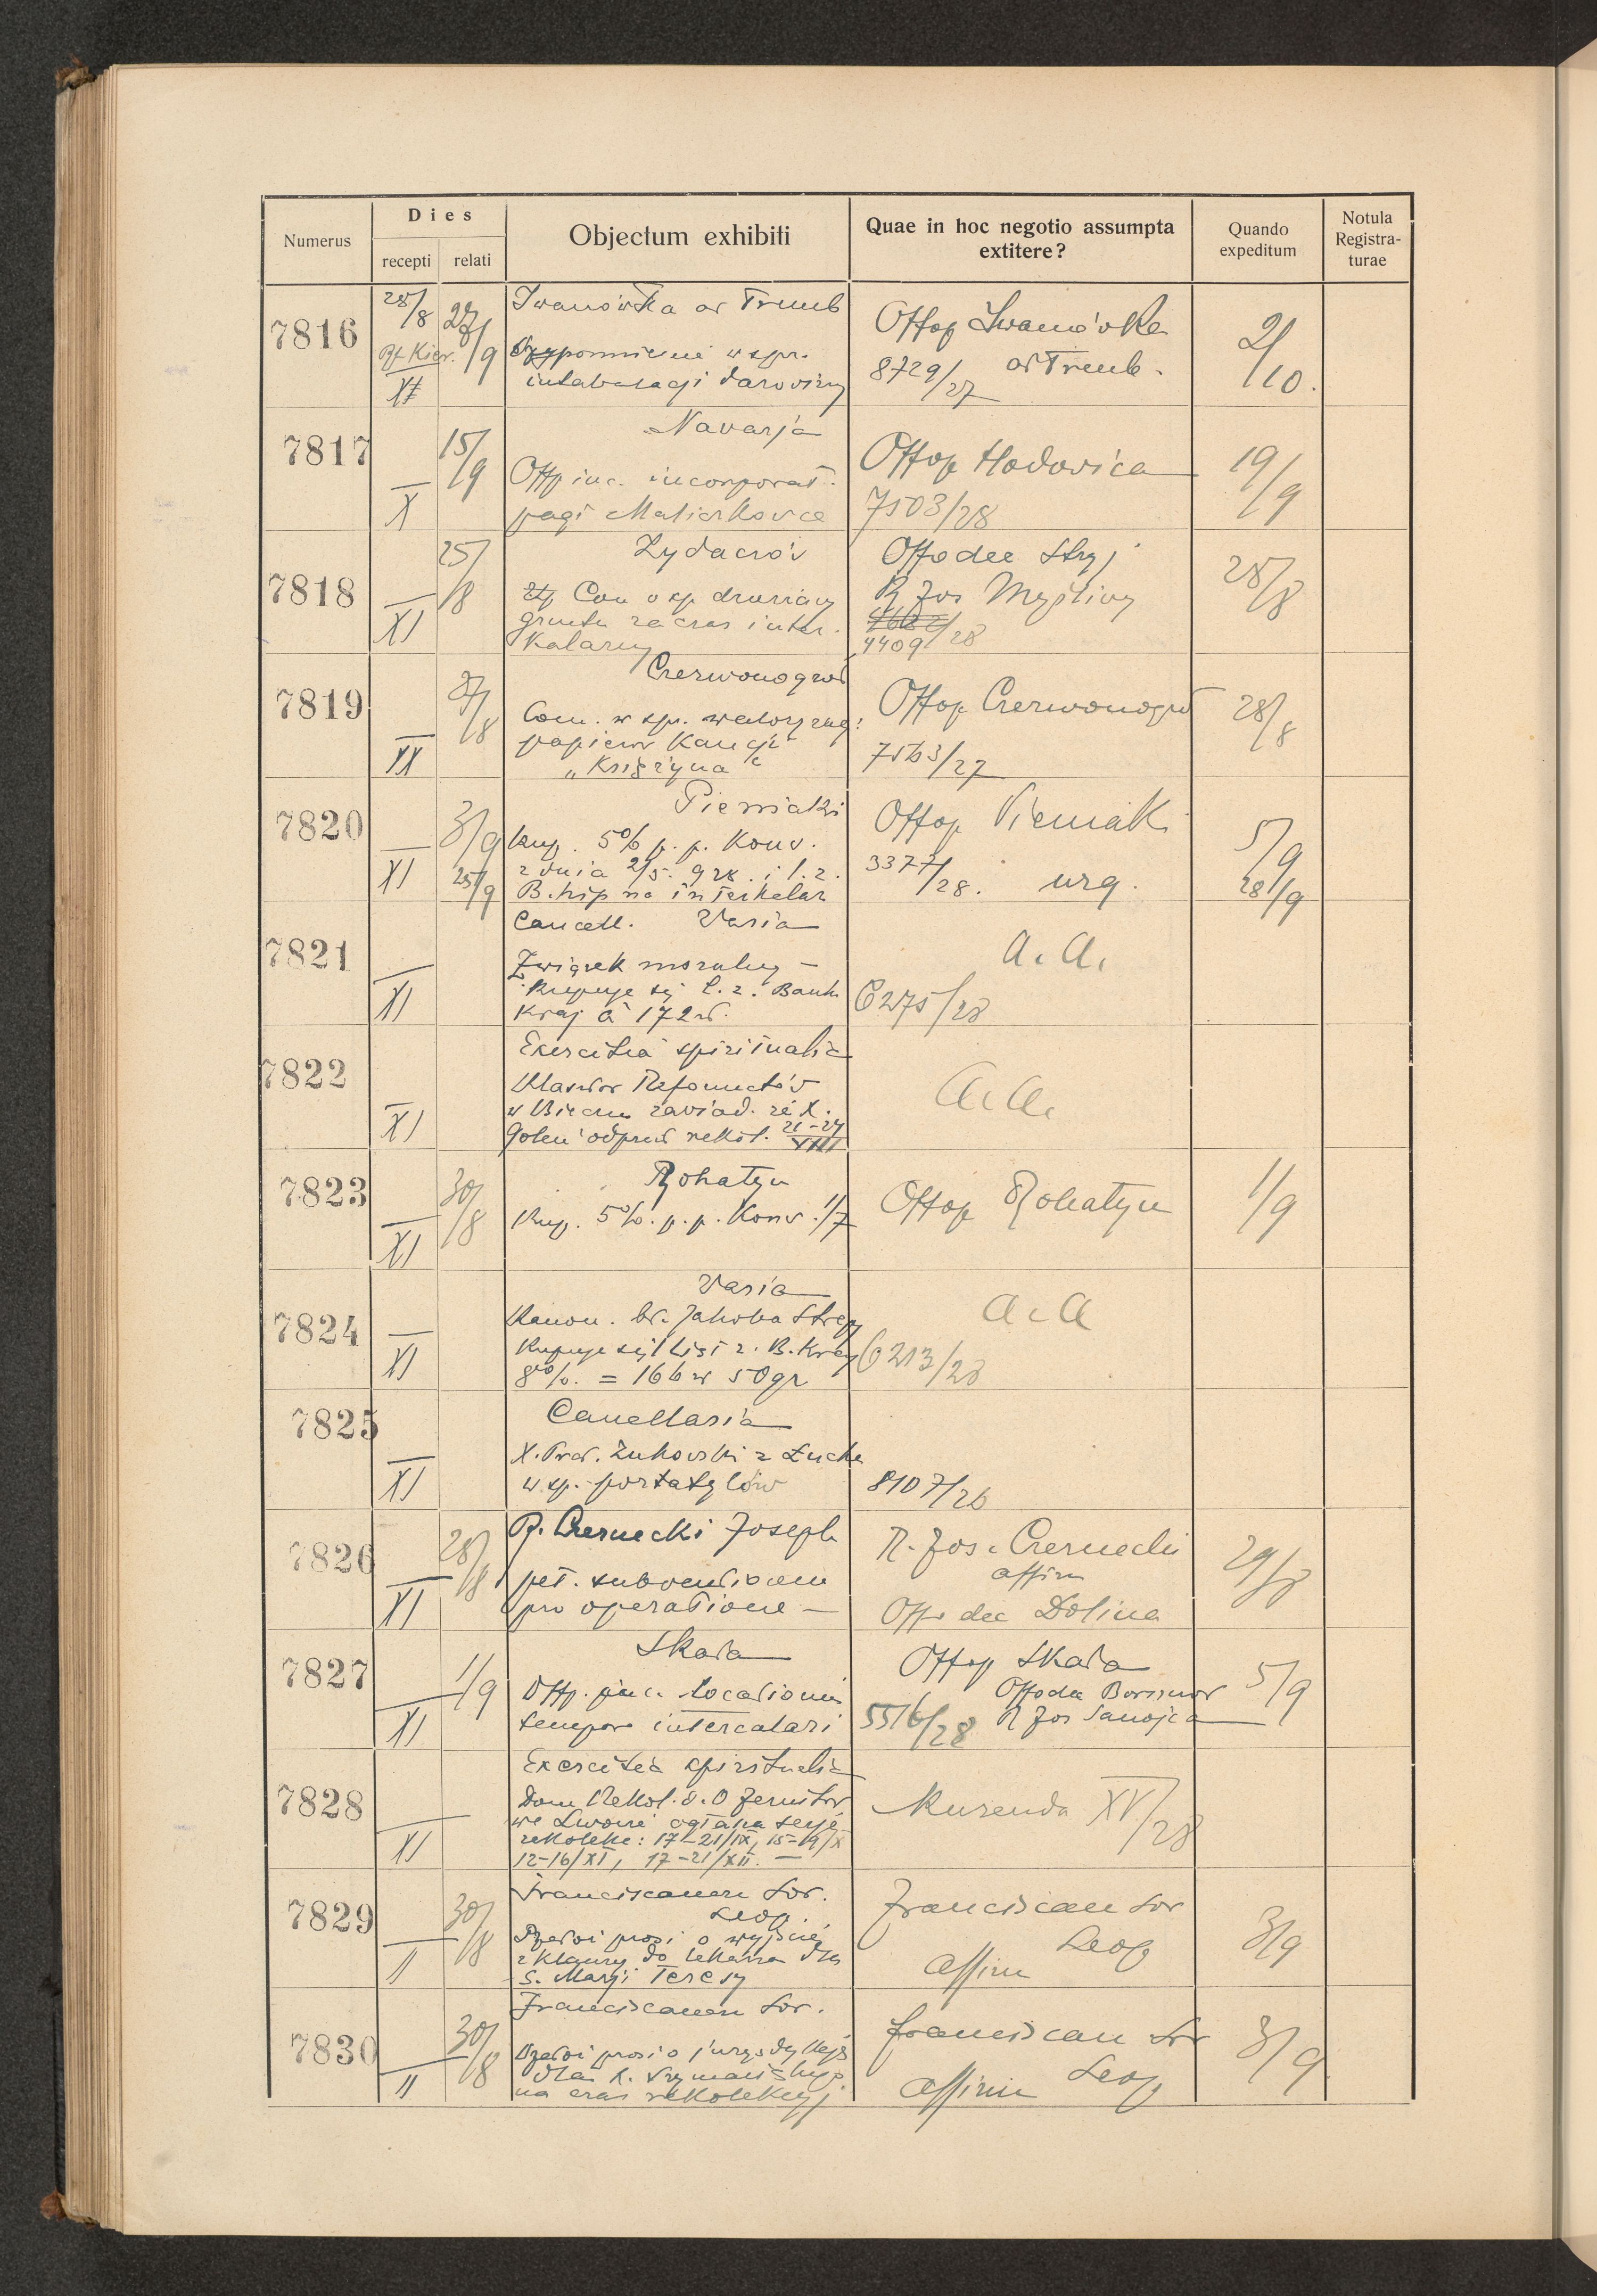 Numerus
Dies
recepti relati
Objectum exhibiti
Quae in hoc negotio assumpta
extitere?
Quando
expeditum
Notula
Registra-
turae
7816
28/8
27/9
Iwanówka ad Tremb
w spr.
intabulacji darowizny
Offop Iwanówka
ad Tremb.
8729/27
2/10.
7817
X
15/9
Navarja
Offp inc. incorporat.
pagi Malickovce
Offop Hodovica
7503/28
19/9
7818
XI
25/8
Zydaczów
gruntu za czas inter-
kalarny
Offo dec Stryj
R Jos Myśliwy
4409/28
28/8
7819
XX
27/8
Czerwonogrod
Com. w spr.
papierów Kaucji
„Księżyna“
Offop Czerwonogrod
7563/27
28/8
7820
XI
3/9
25/9
Pieniaki
Kup. 5% p. p. Konv.
z dnia 2/5. 928. i l. z.
B. hip na interkalar
Offop Pieniaki
3377/28. urg.
5/9
28/9
7821
XI
Cancell. Varia
Związek mszalny –
Kupuje się l. z. Banku
Kraj à 172 zł.
a. a.
6275/28
7822
XI
Exercitia spiritualia
Klasztor Reformatów
w Bieczu zawiad. że X.
Goleń odpraw rekol. 21-24
VIII
a. a.
7823
XI
30/8
Rohatyn
Kup. 5%. p. p. Konv. 1/7
Offop Rohatyn
1/9
7824
XI
Varia
Kanon. bł. Jakóba Strepy
Kupuje się 1 List z. B. Kraj
8%. = 166 zł 50 gr
a. a
6213/28
7825
XI
Cancellaria
X. Prał. Żukowski z Łucka
w sp. portatylów
8107/26
7826
XI
28/8
R. Czernecki Joseph
pet. subventionem
pro operatione –
R. Jos. Czernecki
affirm
Offo dec Dolina
29/8
7827
XI
1/9
Skała
Offp. inc. locationis
tempore intercalari
Offop Skała
Offo dec Borszczów
5516/28 R Jos Sanojca
5/9
7828
XI
Exercitia spiritualia
Dom Rekol. O. O Jezuitów
we Lwowie ogłasza serje
rekolekc: 17–21/IX, 15–19/X
12–16/XI, 17–21/XII. –
Kurenda XV/28
7829
II
30/8
Franciscanen Sor.
Leop.
Przełoż prosi o wyjście
z klauzury do lekarza dla
S. Marji Teresy
Franciscan Sor
Leop
affirm
3/9
7830
II
30/8
Franciscanen Sor.
Przełoż prosi o jurysdykcję
dla X. Szymańskiego
na czas rekolekcyj
Franciscan Sor
Leop
affirm
3/9